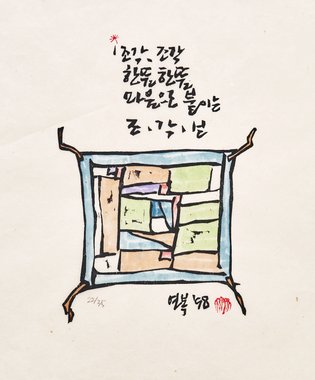 조각, 조각
한뜸 한뜸
마음으로 붙이는
조·각·보
22/75
연복 '98